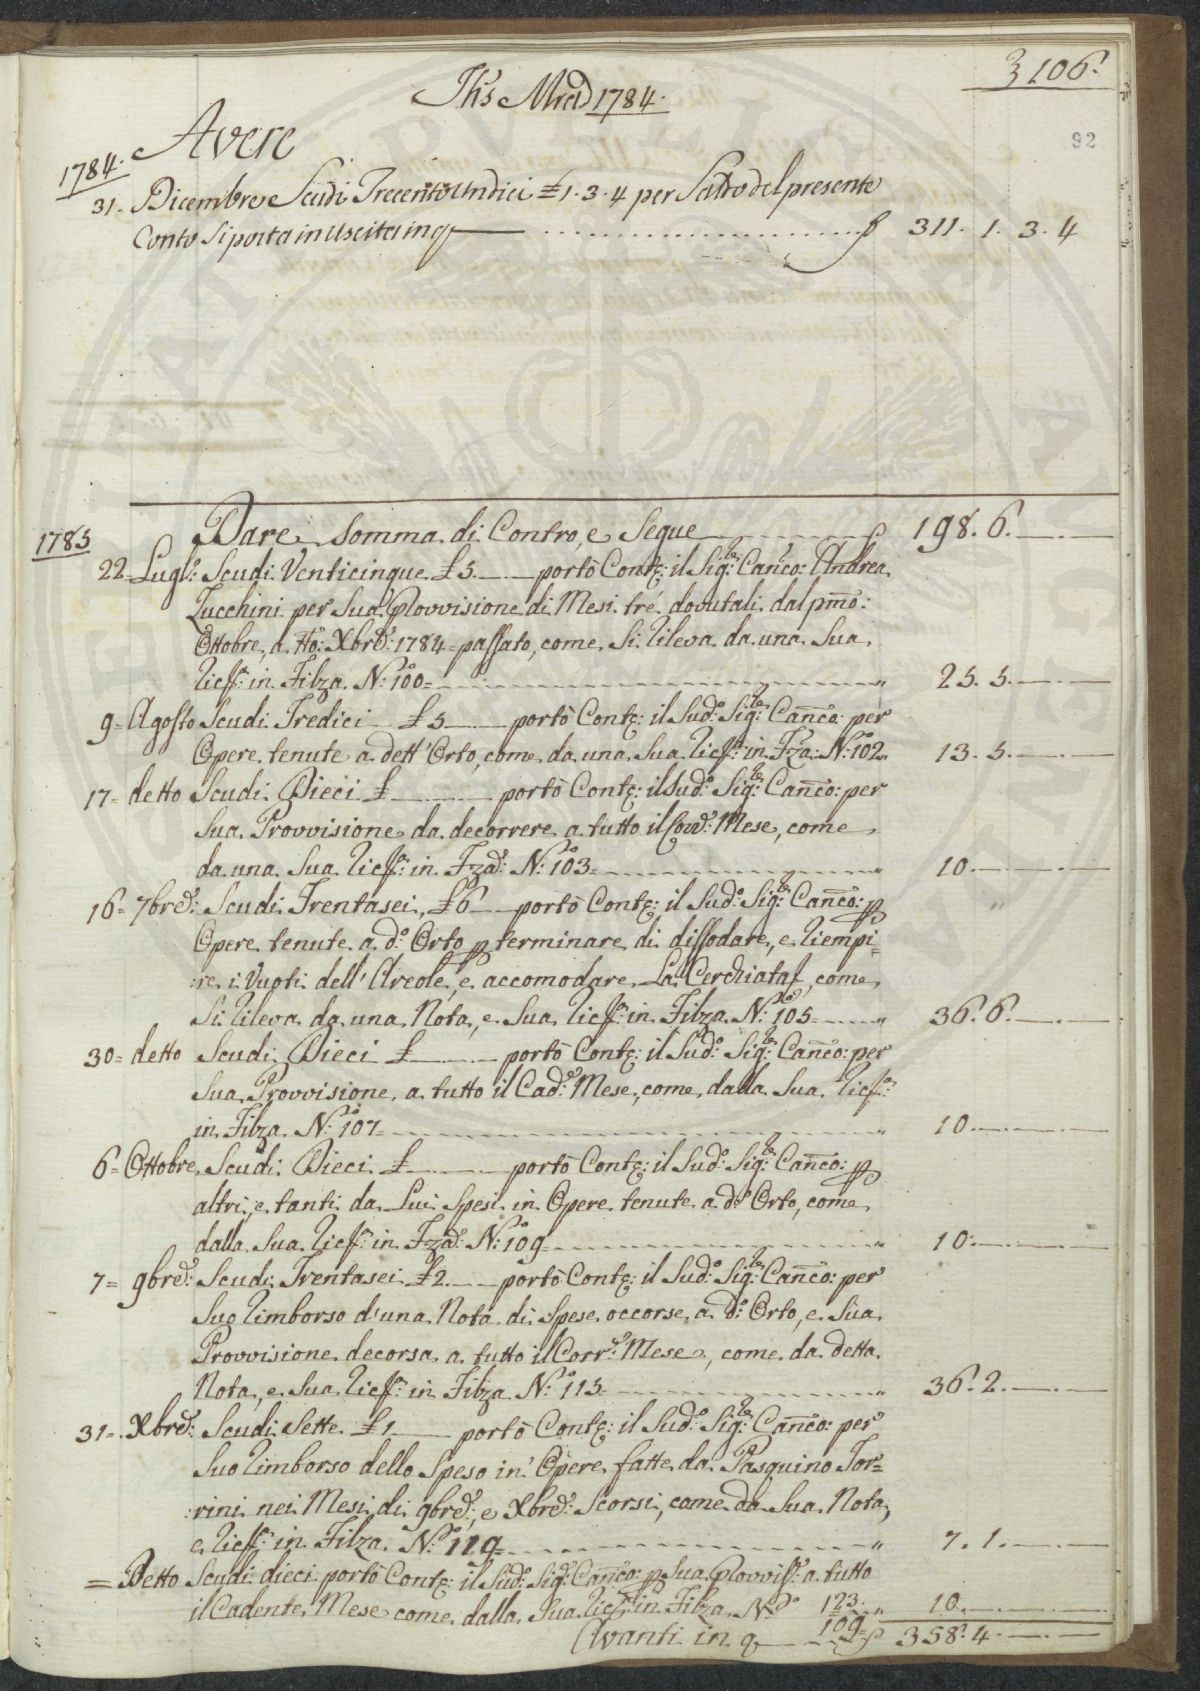 3106.
Jhs Mred 1784.
92
Avere
1784.
31. Dicembre Scudi Trecento Undici £ 1. 3. 4 per Saldo del presente
Conto si porta in Uscita in q 311. 1. 3. 4
1785 Dare somma di Contro, e Segue 198. 6.
22= Lugl.: Scudi Venticinque £ 5. portò Cont.: il Sig.re Can.co: Andrea
Zucchini per Sua Provvisione di Mesi tré dovutali dal pmo:
Ottobre, a tto: Xbre: 1784= passato, come Si rileva da una Sua
ricev.: in Filza N.o 100= 25. 5.
9= Agosto Scudi Tredici £ 5 portò Cont.: il Sud.o Sig.re Can.co: per
Opere tenute a dett' Orto, come da una Sua ricev.: in Fza: N.o 102. 13. 5.
17= detto Scudi Dieci £ portò Cont.: il Sud.o Sig.re Can.co: per
Sua Provvisione da decorrere a tutto il Cord.: Mese, come
da una Sua ricev.: in Fza: N.o 103= 10.
16= 7bre: Scudi Trentasei, £ 6 portò Cont.: il Sud.o Sig.re Can.co: p
Opere tenute a d.o Orto p terminare di dissodare, e riempi=
:re i Vuoti dell' Areole, e accomodare La Cerchiata, come
Si rileva da una Nota, e Sua ricev.: in Filza N.o 105 36. 6.
30= detto Scudi Dieci £ portò Cont.: il Sud.o Sig.re Can.co: per
Sua Provvisione a tutto il Cad.: Mese, come dalla Sua ricev.:
in Filza N.o 107= 10.
6= Ottobre Scudi Dieci £ portò Cont.: il Sud.o Sig.re Can.co: p
altri, e tanti da Lui Spesi in Opere tenute a d.o Orto, come
dalla Sua ricev.: in Fza: N.o 109 10.
7= 9bre: Scudi Trentasei £ 2. portò Cont.: il Sud.o Sig.re Can.co: per
Suo rimborso d'una Nota di Spese occorse a d.o Orto, e Sua
Provvisione decorsa a tutto il Corr.e Mese, come da detta
Nota, e Sua ricev.: in Filza N.o 115= 36. 2.
31= Xbre: Scudi Sette £ 1 portò Cont.: il Sud.o Sig.re Can.co: per
Suo rimborso dello Speso in Opere fatte da Pasquino Tor=
:rini nei Mesi di 9bre:, e Xbre: Scorsi, come da Sua Nota,
e ricev.: in Filza N.o 119= 7. 1.
= Detto Scudi dieci portò Cont.: il Sud.o Sig.re Can.co: p Sua Provvis.: a tutto
il Cadente Mese come dalla Sua ricev.: in Filza N.o 123. 10.
Avanti in q 109= 358. 4.